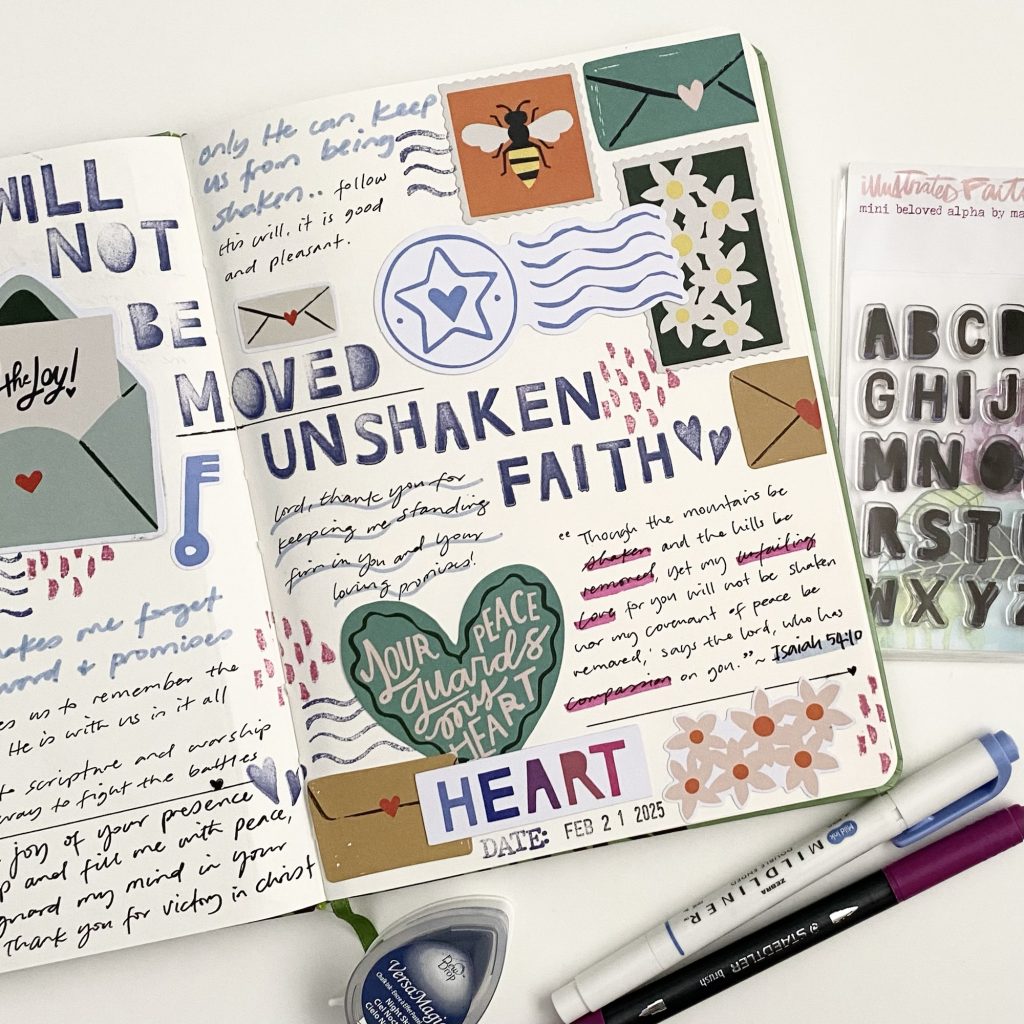 WILL
NOT
BE
MOVED
the Joy!
makes me forget
word + promises
us to remember the
He is with us in it all
to scripture and worship
way to fight the battles
joy of your presence
and fill me with peace,
guard my mind in your
Thank you for victory in christ
only He can keep
us from being
shaken.. follow
His will, it is good
and pleasant.
UNSHAKEN
FAITH
Lord, thank you for
keeping me standing
firm in you and your
loving promises!
"Though the mountains be
shaken and the hills be
removed, yet my unfailing
love for you will not be shaken
nor my covenant of peace be
removed,' says the lord, who has
compassion on you." ~ Isaiah 54:10
YOUR PEACE
guards
my
HEART
HEART
DATE: FEB 21 2025
illustrated Faith
mini beloved alpha by
A B C D
G H I J
M N O
R S T
W X Y Z
Mild ink
MILDLINER
DOUBLE ENDED
ZEBRA
STAEDTLER brush
Dew Drop
VersaMagic
Night Sky